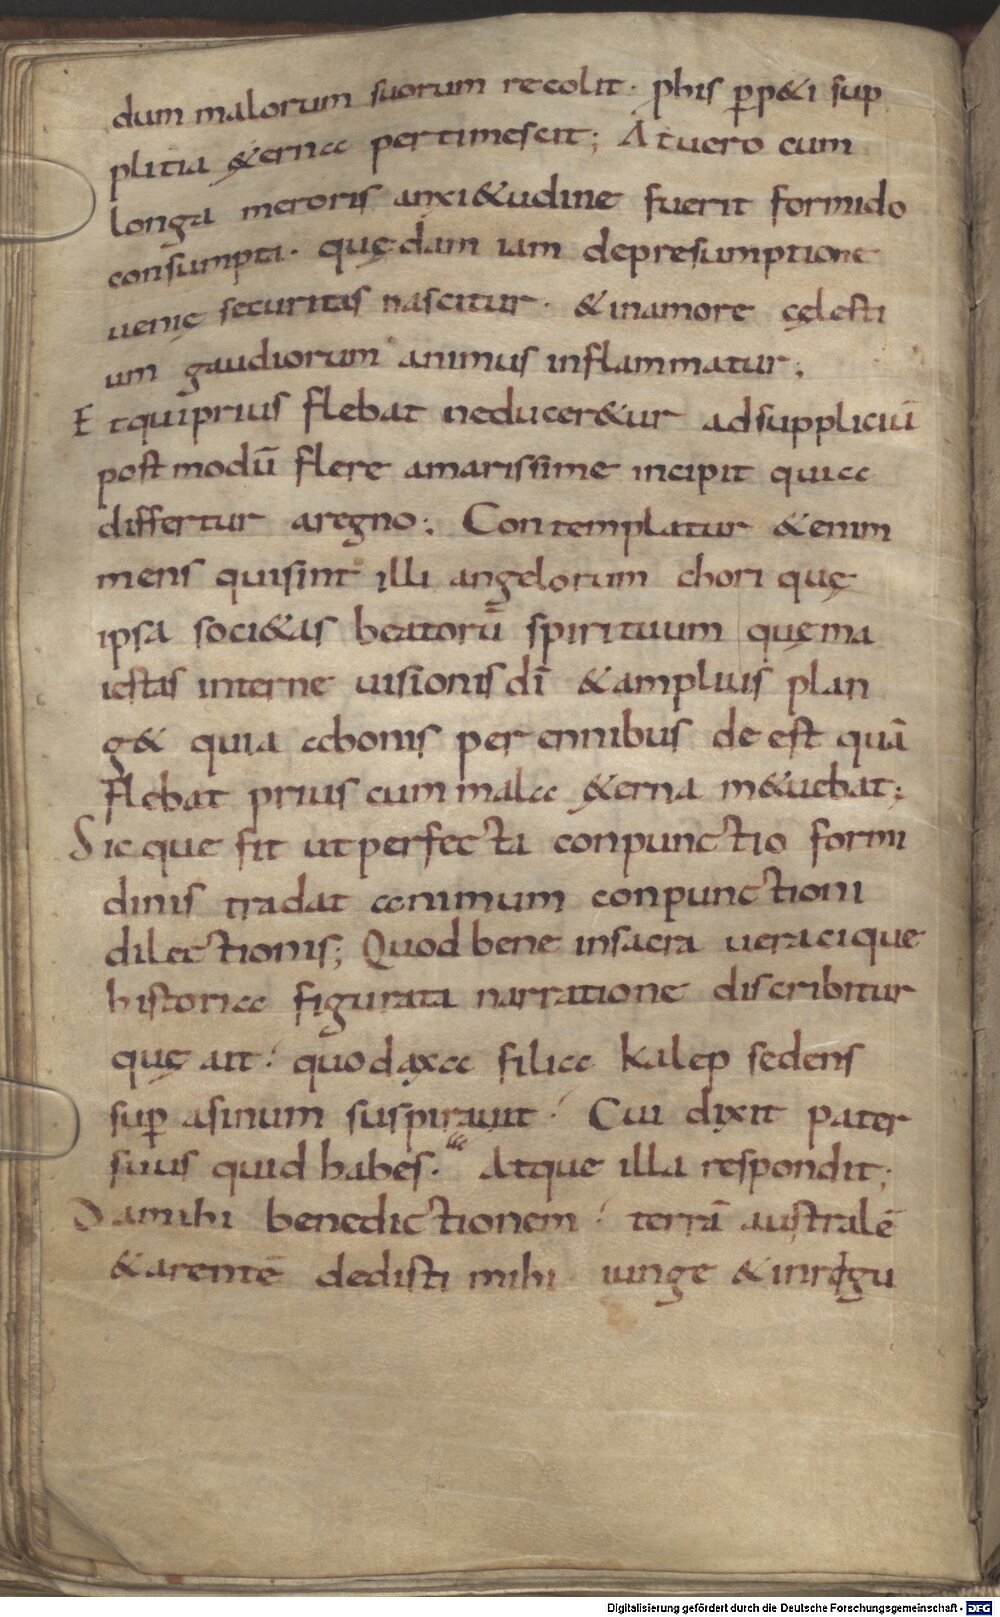 dum malorum suorum recolit· phis ꝑp&i sup
plitia &erna pertimescit; At uero cum
longa meroris anxi&udine fuerit formido
consumpta· quędam iam depresumptione
uenię securitas nascitur· & inamore cęlesti
um gaudiorum animus inflammatur;
Et qui prius flebat neducer&ur adsuppliciū
postmodū flere amarissime incipit quia
differtur aregno; Contemplatur &enim
mens quisint illi angelorum chori quę
ipsa soci&as beatorū spirituum quęma
iestas interne uisionis dī & amplius plan
g& quia abonis perennibus deest quā
flebat prius cum mala &erna m&uebat;
Sicque fit ut perfecta conpunctio formi
dinis tradat animum conpunctioni
dilectionis; Quod bene insacra ueracique
historia figurata narratione discribitur
quę ait: quod axa filia kalep sedens
suꝑ asinum suspirauit· Cui dixit pater
suus quid habes· Atque illa respondit;
Da mihi benedictionem: terrā australē
& arentē dedisti mihi iunge & inregu
Digitalisierung gefördert durch die Deutsche Forschungsgemeinschaft - DFG